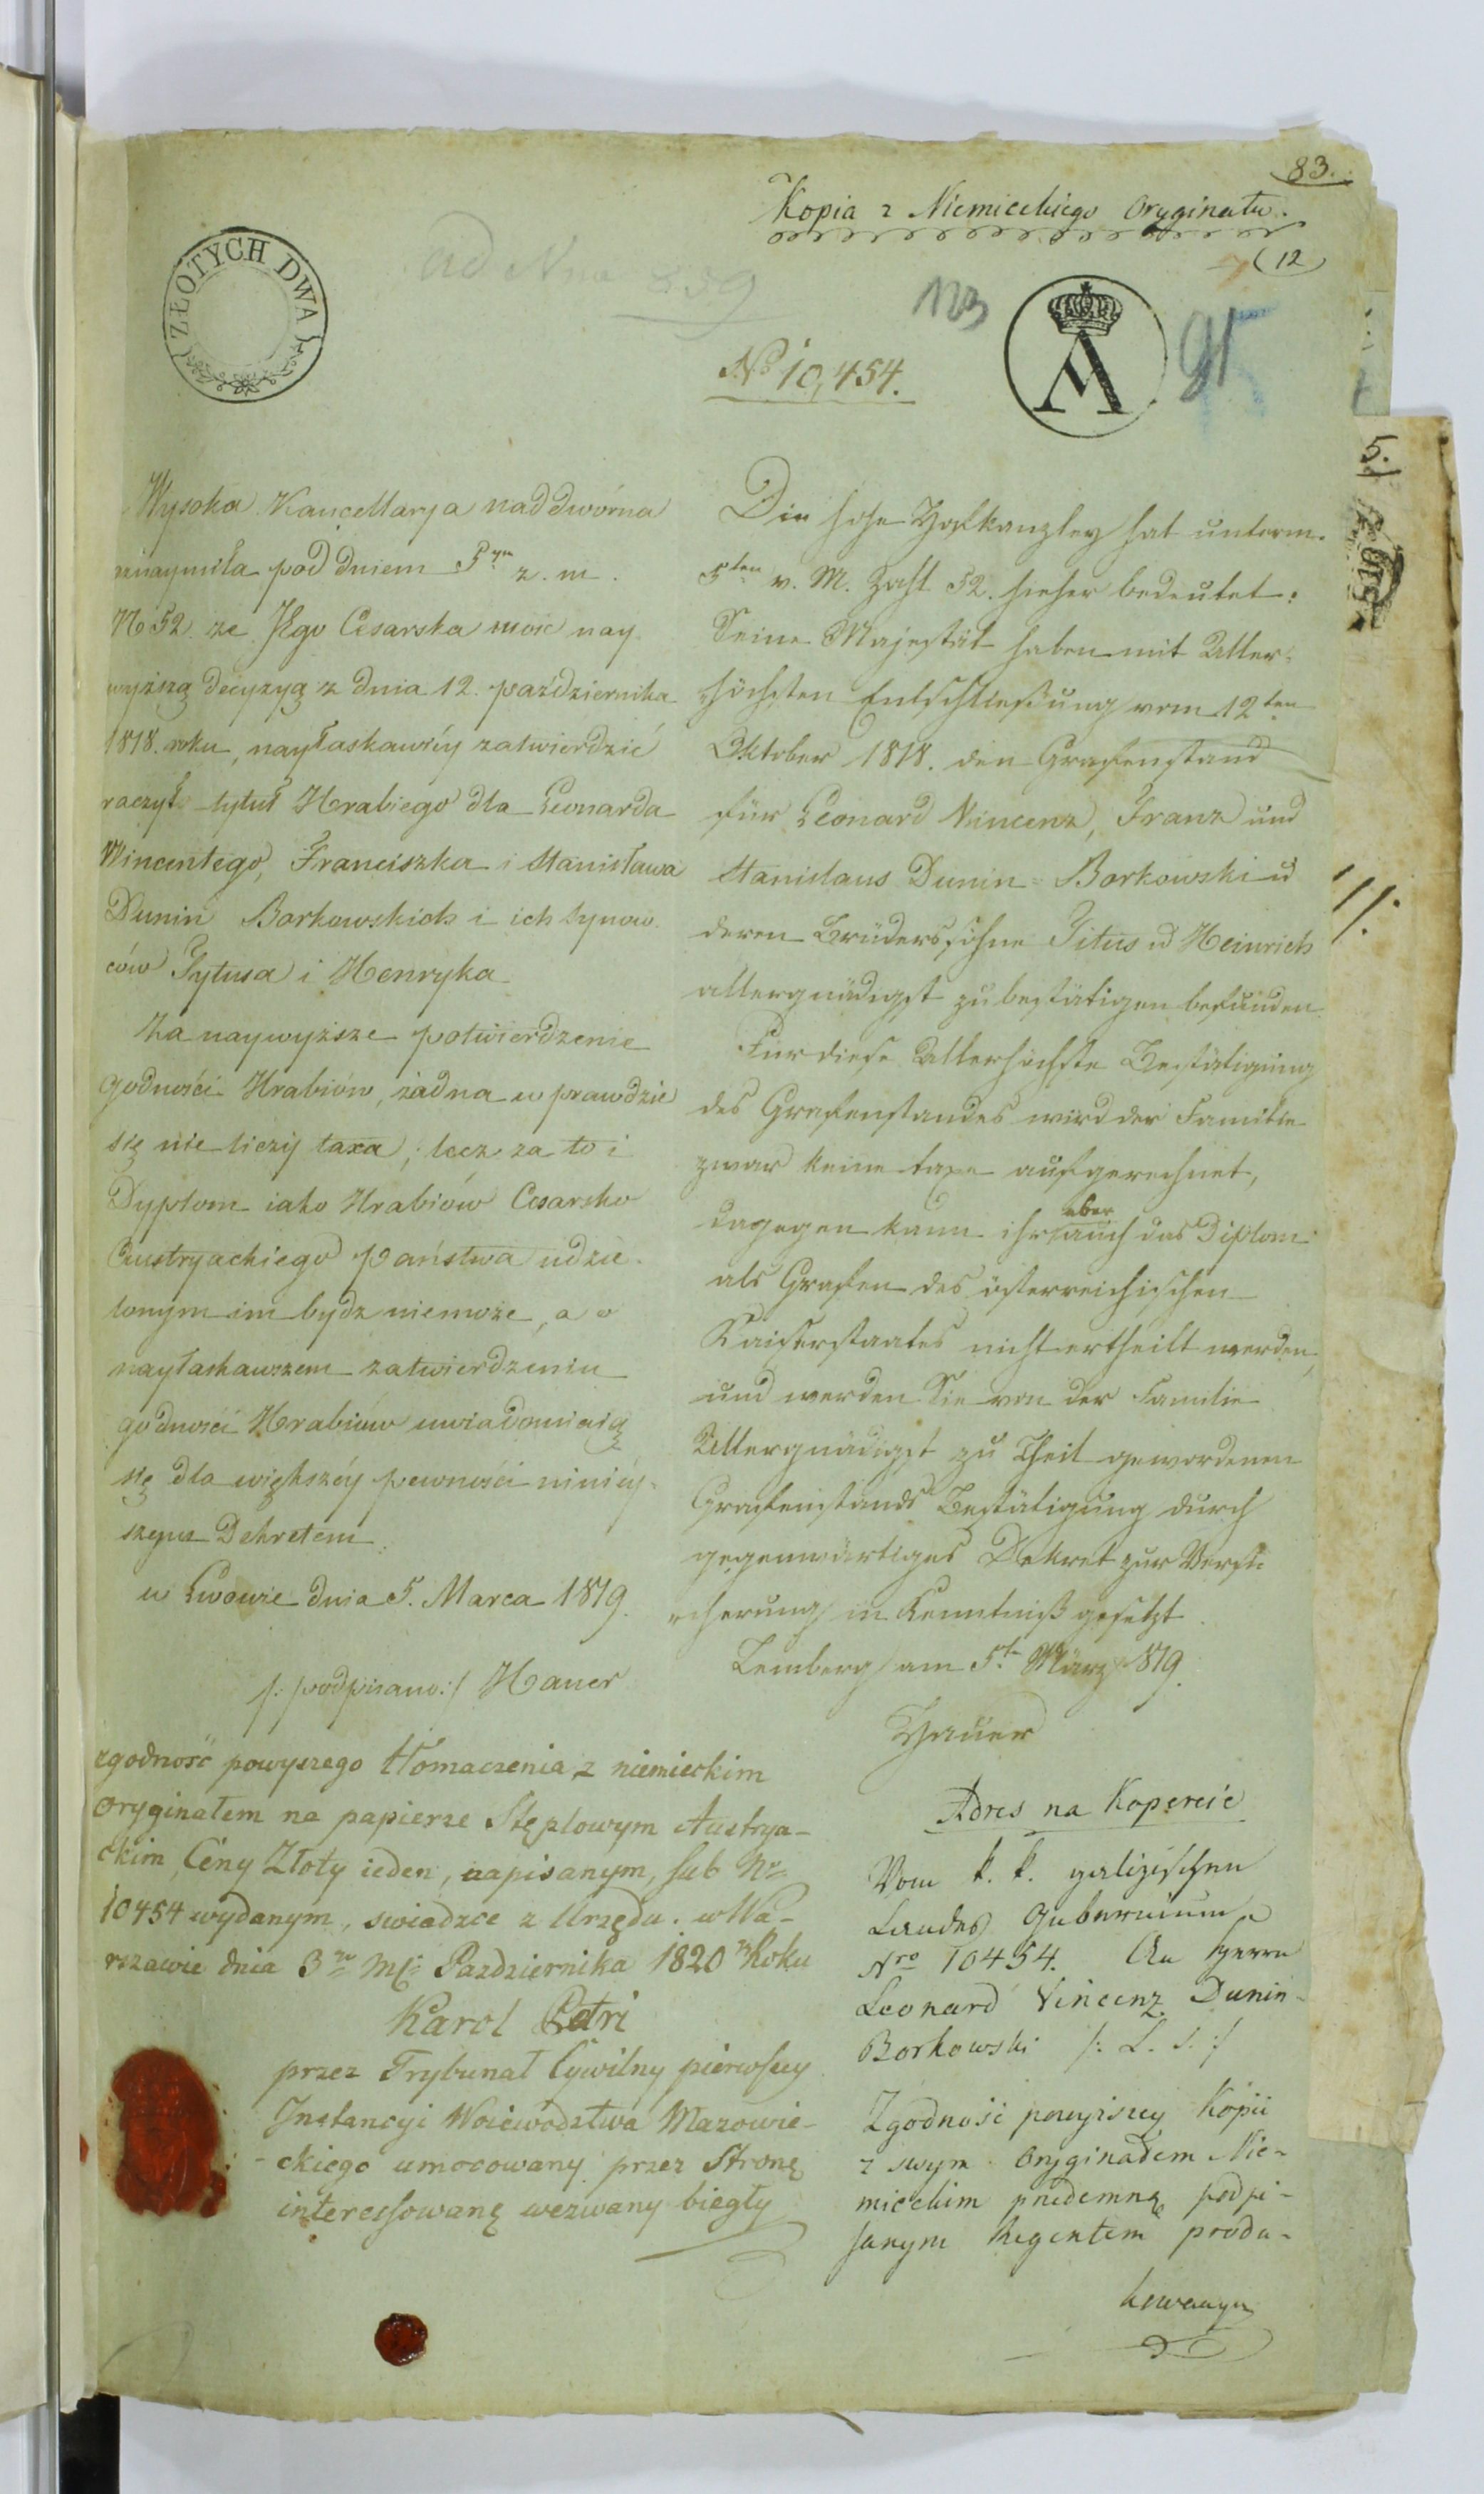 83.
Kopia z Niemieckiego Oryginału.
(12)
ZŁOTYCH DWA
ad Nrum 239
123
A
95
No 10,454.
5.
Wysoka Kancellarya naddworna
oznaymiła pod dniem 5ym z. m.
No 52. ze Jego Cesarska mość nay
wyższą decyzyą z dnia 12. października
1818. roku, nayłaskawiéy zatwierdzić
raczył tytuł Hrabiego dla Leonarda
Wincentego, Franciszka i Stanisława
Dunin Borkowskich i ich synow
ców Tytusa i Henryka
Za naywyższe potwierdzenie
godności Hrabiów, żadna w prawdzie
się nie liczy taxa; lecz za to i
Dyplom iako Hrabiów Cesarsko
Austryackiego państwa udzie
lonym im bydz niemoże, a o
nayłaskawszem zatwierdzeniu
godności Hrabiów uwiadomiaią
się dla większéy pewności niniéy-
szym Dekretem.
w Lwowie dnia 5. Marca 1819.
/: podpisano :/ Hauer
Die hohe Hofkanzley hat unterm
5ten v. M. Zahl 52. hieher bedeutet:
Seine Majestät haben mit Aller-
höchsten Entschließung vom 12ten
Oktober 1818. den Grafenstand
für Leonard Vincenz, Franz und
Stanislaus Dunin-Borkowski u
deren Brüderssöhne Titus u Heinrich
allergnädigst zu bestätigen befunden.
Für diese Allerhöchste Bestätigung
des Grafenstandes wird der Familie
zwar keine taxe aufgerechnet,
dagegen kann ihr aber auch das Diplom
als Grafen des österreichischen
Kaiserstaates nicht ertheilt werden,
und werden Sie von der Familie
Allergnädigst zu Theil gewordenen
Grafenstands Bestätigung durch
gegenwärtiges Dekret zur Versi
cherung in Kenntniß gesetzt.
Lemberg am 5ten März 1819.
Hauer
11.
zgodność powyszego tłomaczenia z niemieckim
Oryginałem na papierze Stęplowym Austrya-
ckim Cény Złoty ieden, napisanym, sub Nro
10454 wydanym, swiadzce z Urzędu. w Wa-
rszawie dnia 3go Mca Pazdziernika 1820 Roku
Karol Petri
przez Trybunał Cywilny pierwszey
Instancyi Woiewodztwa Mazowie-
-ckiego umocowany przez Stronę
interessowaną wezwany biegły
Adres na Kopercie
Vom k. k. galizischen
Landes Gubernium
Nro 10454. An Herrn
Leonard Vincenz Dunin-
Borkowski /: L. S. :/
Zgodność powyższey Kopii
z swym Oryginałem Nie-
mieckim przedemną podpi-
sanym Regentem produ-
kowanym